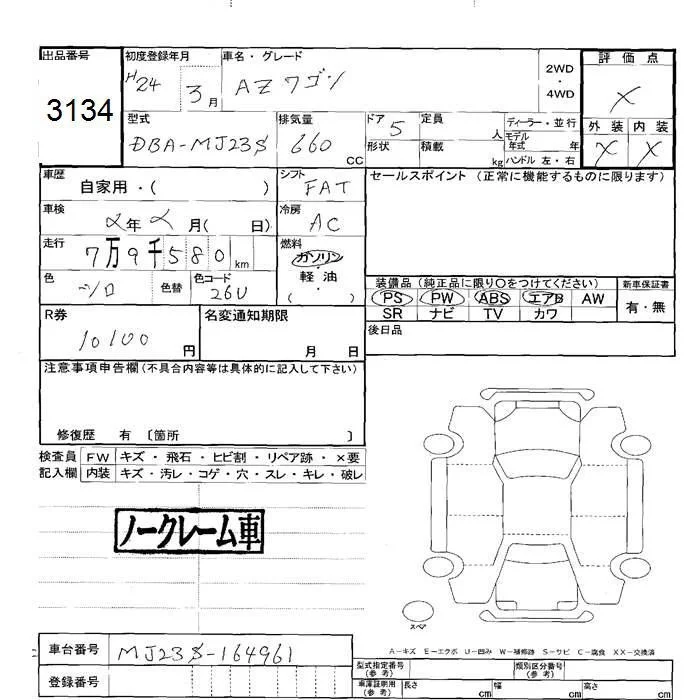 出品番号 初度登録年月 車名・グレード 評価点
3134 H24 3月 AZワゴン 2WD・4WD ×
型式 排気量 ドア 定員 ディーラー・並行 外装 内装
DBA-MJ23S 660 CC 5 人 モデル年式 年 × ×
形状 積載 kg ハンドル 左・右
車歴 自家用・( ) シフト FAT セールスポイント (正常に機能するものに限ります)
車検 2年2月( 日) 冷房 AC
走行 7万9千580km 燃料 ガソリン・軽油・( )
色 シロ 色替 色コード 26U
装備品(純正品に限り○をつけてください) 新車保証書
PS PW ABS エアB AW 有・無
SR ナビ TV カワ
R券 10100円 名変通知期限 月 日 後日品
注意事項申告欄(不具合内容等は具体的に記入して下さい)
修復歴 有 〔箇所 〕
検査員 FW キズ・飛石・ヒビ割・リペア跡・×要
記入欄 内装 キズ・汚レ・コゲ・穴・スレ・キレ・破レ
ノークレーム車
スペア
A-キズ E-エクボ U-凹み W-補修跡 S-サビ C-腐食 XX-交換済
車台番号 MJ23S-164961
登録番号
型式指定番号(参考) 類別区分番号(参考)
車庫証明用(参考) 長さ cm 幅 cm 高さ cm